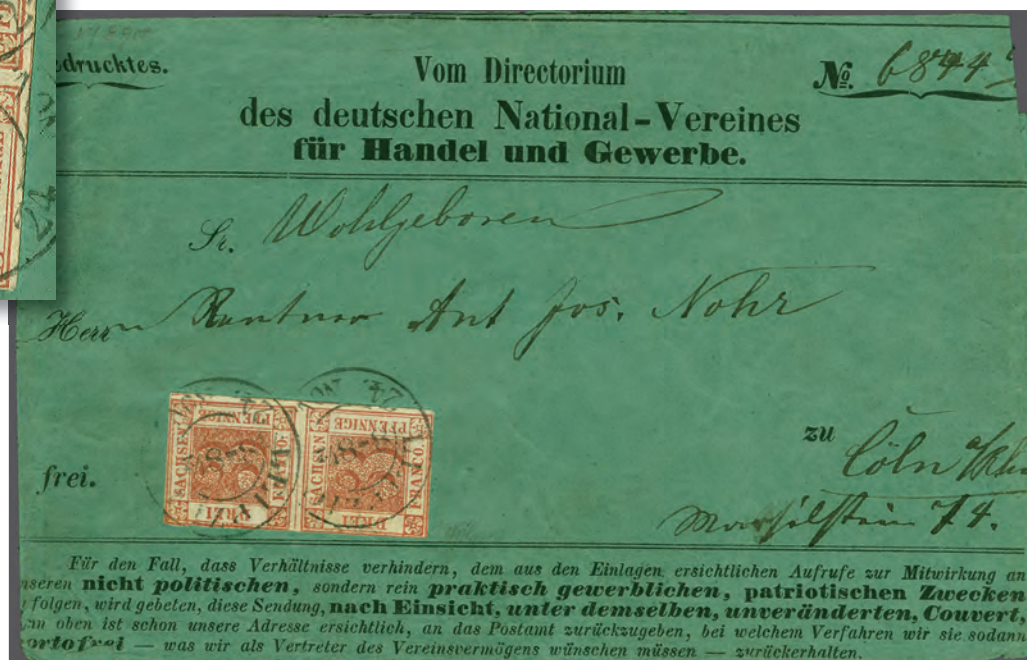 drucktes.
Vom Directorium
№. 6844
des deutschen National-Vereines
für Handel und Gewerbe.
Sr. Wohlgeboren
Herrn Rentner Ant Jos. Nohr
zu
Cöln
frei.
SACHSEN PFENNIGE FRANCO. DREI 3
SACHSEN PFENNIGE FRANCO. DREI 3
LEIPZIG
24 NOV
Marsilstein 74.
Für den Fall, dass Verhältnisse verhindern, dem aus den Einlagen ersichtlichen Aufrufe zur Mitwirkung an
nseren nicht politischen, sondern rein praktisch gewerblichen, patriotischen Zwecken
folgen, wird gebeten, diese Sendung, nach Einsicht, unter demselben, unveränderten, Couvert,
an oben ist schon unsere Adresse ersichtlich, an das Postamt zurückzugeben, bei welchem Verfahren wir sie sodann
ortofrei — was wir als Vertreter des Vereinsvermögens wünschen müssen — zurückerhalten.